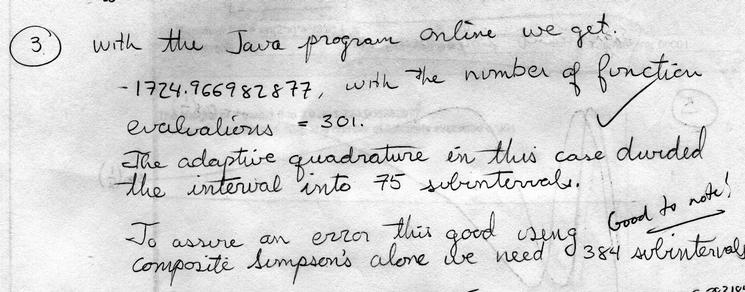 3. with the Java program online we get.
-1724.966982877, with the number of function
evaluations = 301.
The adaptive quadrature in this case divided
the interval into 75 subintervals.
Good to note!
To assure an error this good using
composite Simpson's alone we need 384 subintervals